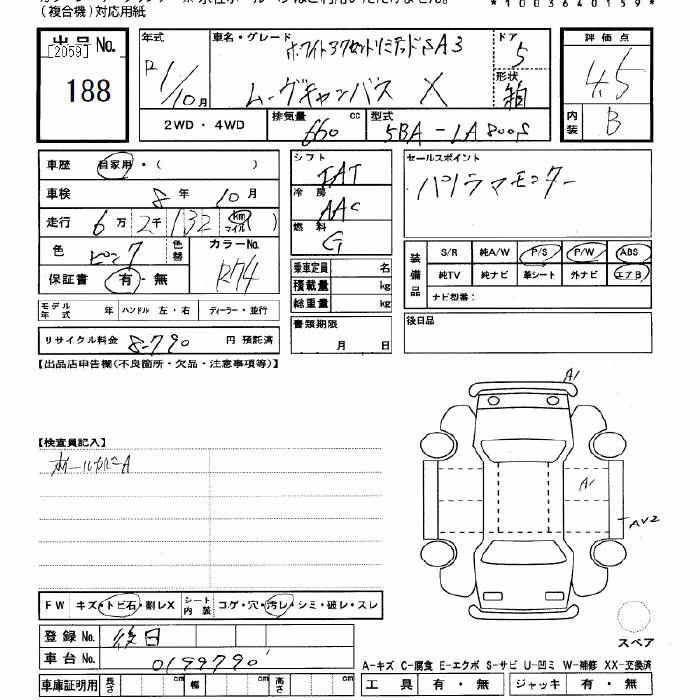 (複合機)対応用紙
*1003640159*
出品No.
[2059]
188
年式
R1/10月
車名・グレード
ホワイトアクセントリミテッドSA3
ムーヴキャンバス X
ドア
5
形状
箱
評価点
4.5
内装
B
2WD・4WD
排気量 660 cc
型式 5BA-LA800S
車歴 自家用・( )
車検 8年10月
走行 6万2千132 (km マイル)
色 ピンク
色替
カラーNo.
R74
保証書 有・無
モデル年式 年 ハンドル 左・右 ディーラー・並行
リサイクル料金 8,790 円 預託済
シフト
IAT
冷房
AAC
燃料
G
乗車定員 名
積載量 kg
総重量 kg
書類期限
月 日
セールスポイント
パノラマモニター
装備品
S/R 純A/W P/S P/W ABS
純TV 純ナビ 革シート 外ナビ エアB
ナビ型番:
後日品
【出品店申告欄(不良箇所・欠品・注意事項等)】
【検査員記入】
ホイールカバーA
A1
A1
AU2
スペア
FW キズ・トビ石・割レX
シート内装 コゲ・穴・汚レ・シミ・破レ・スレ
登録No. 後日
車台No. 0199790
車庫証明用 長さ cm 幅 cm 高さ cm
A-キズ C-腐食 E-エクボ S-サビ U-凹ミ W-補修 XX-交換済
工具 有・無 ジャッキ 有・無